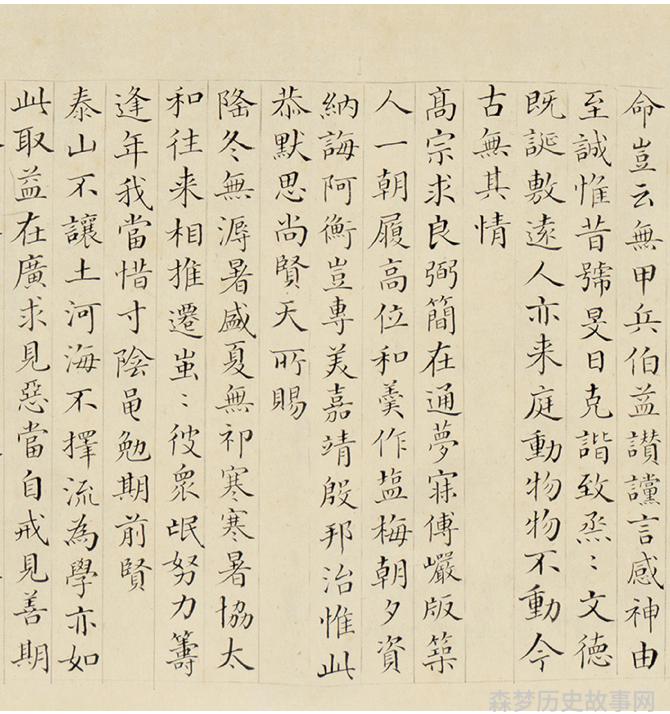 命豈云無甲兵伯益讃讜言感神由
至誠惟昔號旻日克諧致烝〻文徳
既誕敷逺人亦来庭動物物不動今
古無其情
髙宗求良弼簡在通夢寐傅巖版築
人一朝履高位和羹作塩梅朝夕資
納誨阿衡豈專美嘉靖殷邦治惟此
恭默思尚賢天所賜
隆冬無溽暑盛夏無祁寒寒暑協太
和往来相推遷蚩〻彼衆氓努力籌
逢年我當惜寸陰黽勉期前賢
泰山不讓土河海不擇流為學亦如
此取益在廣求見惡當自戒見善期
森梦历史故事网